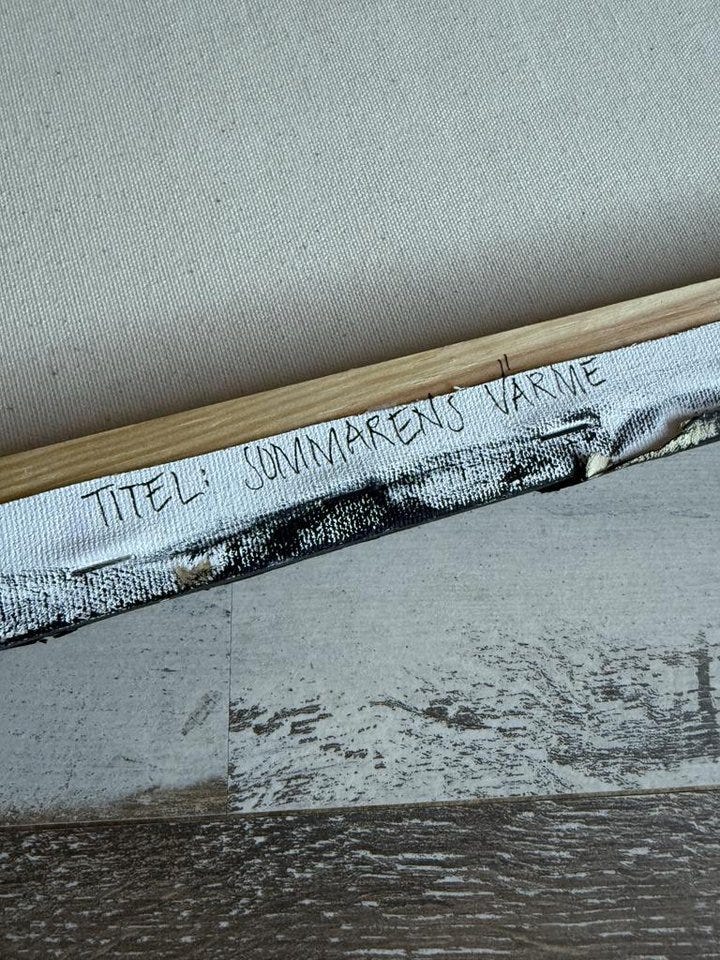 TITEL: SOMMARENS VÄRME